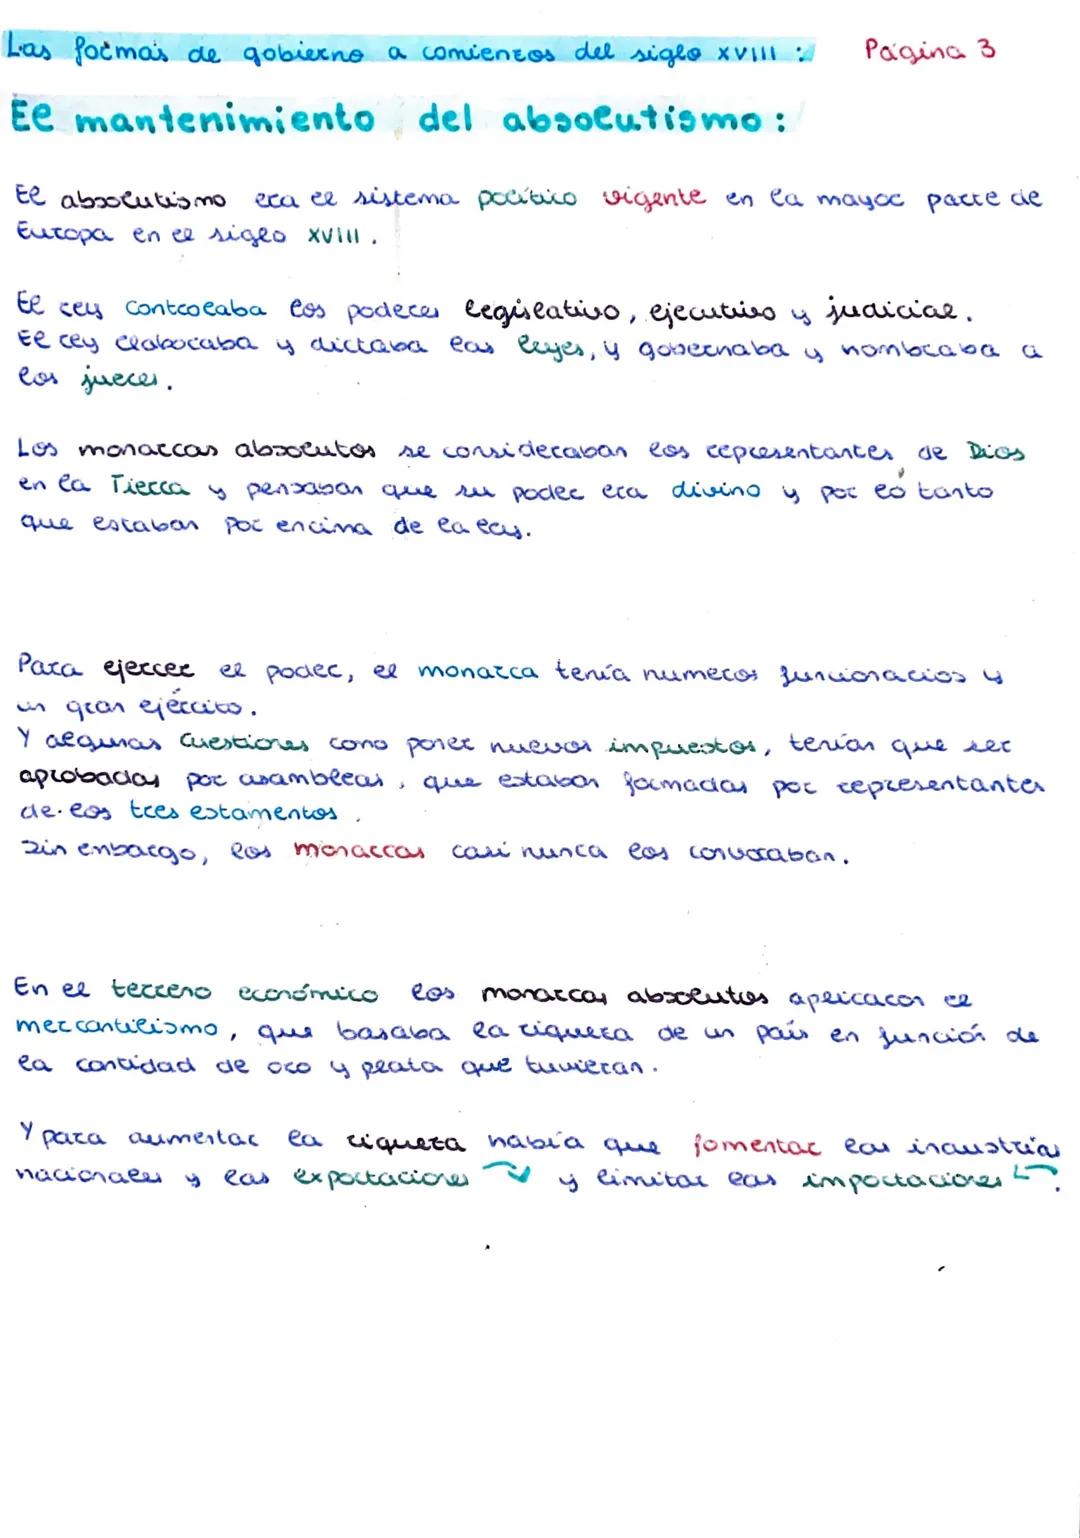 Las formas de gobierno a comienzos del siglo XVIII: Página 3
El mantenimiento del absolutismo:
El absolutismo era el sistema político vigente en la mayor parte de
Europa en el siglo XVIII.
El rey controlaba los poderes legislativo, ejecutivo y judicial.
El rey elaboraba y dictaba las leyes, y gobernaba y nombraba a
los jueces.
Los monarcas absolutos se consideraban los representantes de Dios
en la Tierra y pensaban que su poder era divino y por lo tanto
que estaban por encima de la ley.
Para ejercer el poder, el monarca tenía numeros funcionarios y
un gran ejército.
Y algunas cuestiones como poner nuevos impuestos, tenían que ser
aprobadas por asambleas, que estaban formadas por representantes
de los tres estamentos.
Sin embargo, los monarcas casi nunca los convocaban.
En el terreno económico los monarcas absolutos aplicaron el
mercantilismo, que basaba la riqueza de un país en función de
la cantidad de oro y plata que tuvieran.
Y para aumentar la riqueza había que fomentar las industrias
nacionales y las exportaciones y limitar las importaciones.